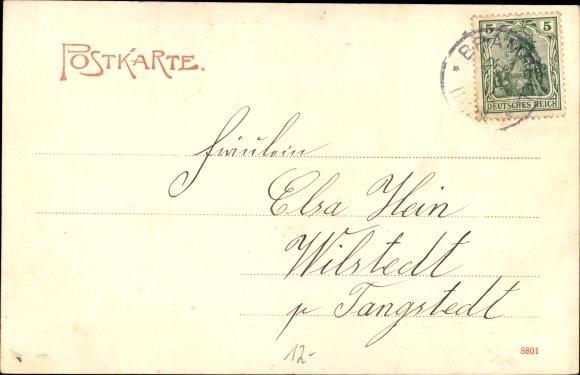 POSTKARTE.
5 5
DEUTSCHES REICH
Fräulein
Elsa Hein
Wilstedt
p Tangstedt
12-
8801